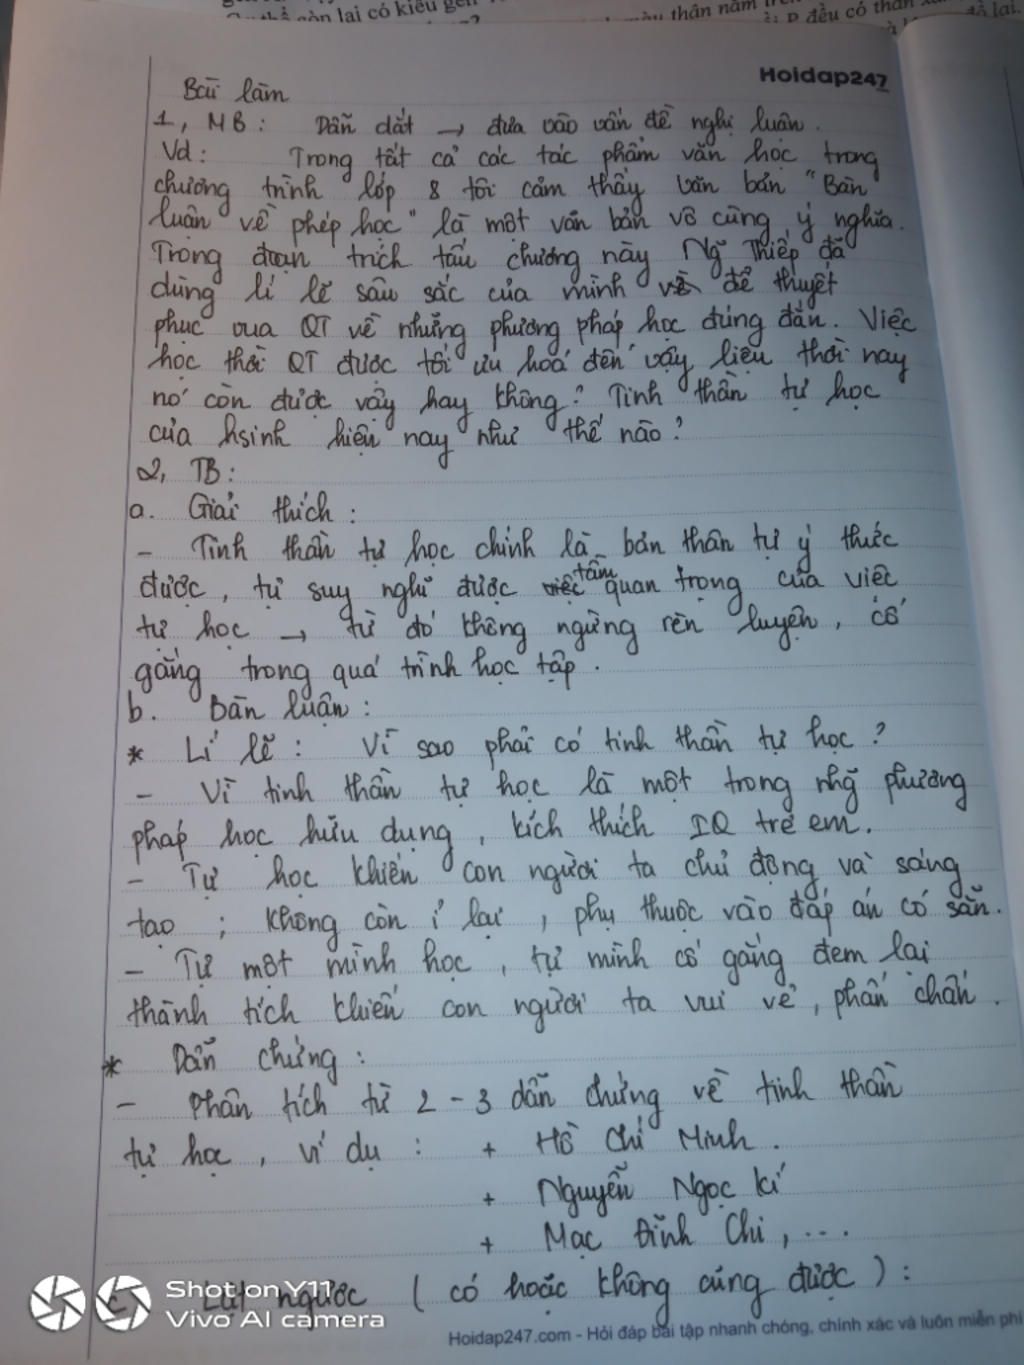 còn lại có kiểu gen
thân nằm
đều có thân
Hoidap247
Bài làm
1, MB: Dẫn dắt → đưa vào vấn đề nghị luận.
Vd: Trong tất cả các tác phẩm văn học trong
chương trình lớp 8 tôi cảm thấy văn bản "Bàn
luận về phép học" là một văn bản vô cùng ý nghĩa.
Trong đoạn trích tấu chương này Ng Thiếp đã
dùng lí lẽ sâu sắc của mình để thuyết
phục vua QT về những phương pháp học đúng đắn. Việc
học thời QT được tối ưu hoá đến vậy liệu thời nay
nó còn được vậy hay không? Tinh thần tự học
của hsinh hiện nay như thế nào?
2, TB:
a. Giải thích:
- Tinh thần tự học chính là bản thân tự ý thức
được, tự suy nghĩ được tầm quan trọng của việc
tự học → từ đó không ngừng rèn luyện, cố
gắng trong quá trình học tập.
b. Bàn luận:
* Lí lẽ: Vì sao phải có tinh thần tự học?
- Vì tinh thần tự học là một trong nhg phương
pháp học hữu dụng, kích thích IQ trẻ em.
- Tự học khiến con người ta chủ động và sáng
tạo; không còn ỉ lại, phụ thuộc vào đáp án có sẵn.
- Tự một mình học, tự mình cố gắng đem lại
thành tích khiến con người ta vui vẻ, phấn chấn.
* Dẫn chứng:
- Phân tích từ 2 - 3 dẫn chứng về tinh thần
tự học, ví dụ: + Hồ Chí Minh.
+ Nguyễn Ngọc Kí
+ Mạc Đĩnh Chi, ...
Lật ngược (có hoặc không cũng được):
Shot on Y11
Vivo AI camera
Hoidap247.com - Hỏi đáp bài tập nhanh chóng, chính xác và luôn miễn phí